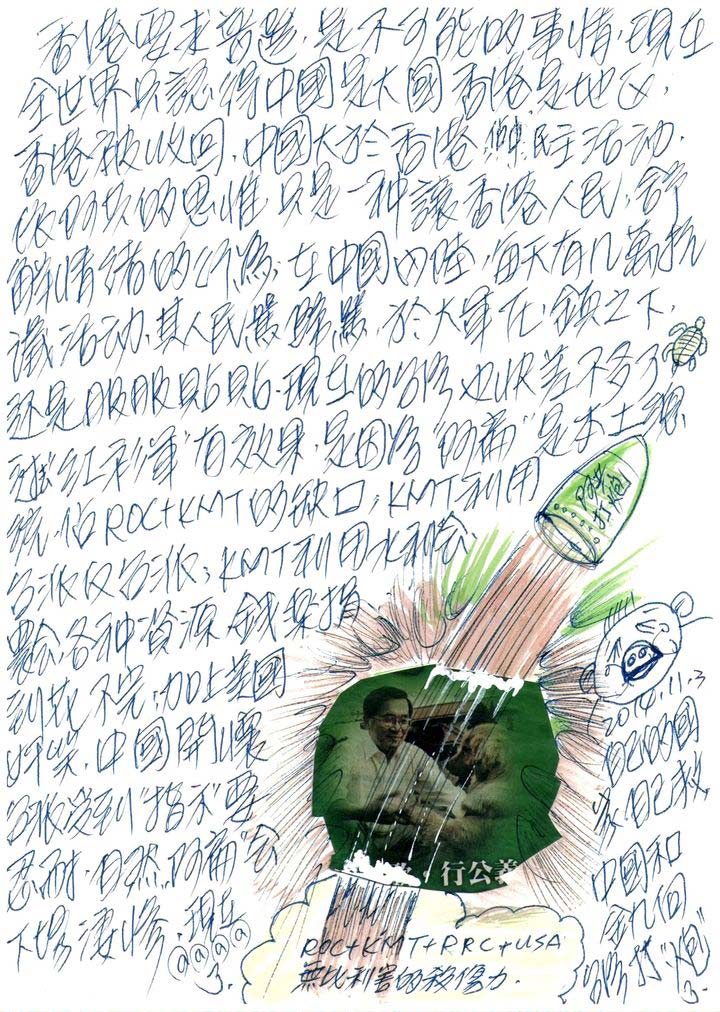 香港要求普選,是不可能的事情,現在
全世界只認得中國是大國香港是地区,
香港被收回,中國大於香港,民主活动,
的思惟,只是一种讓香港人民,舒
解情緒的行為,在中國內陸,每天有几萬抗
議活动,其人民於大軍在鎮之下,
还是服服貼貼,現在的台灣也快差不多了
"紅衫軍"有效果,是因為"阿扁"是本土總
統,佔ROC+KMT的缺口,KMT利用
台派反台派,KMT利用水利会、
農会各种資源、錢
到花不完,加上美國
奸笑,中國開懷
台派受到"指示"要
忍耐,自然"阿扁"会
下場淒慘,現在
@@@@
了.
2014.11.3
自己的國
家自己救
中國和
台灣打"炮"
了.
行公義
ROC+KMT+PRC+USA
無比利害的殺傷力.